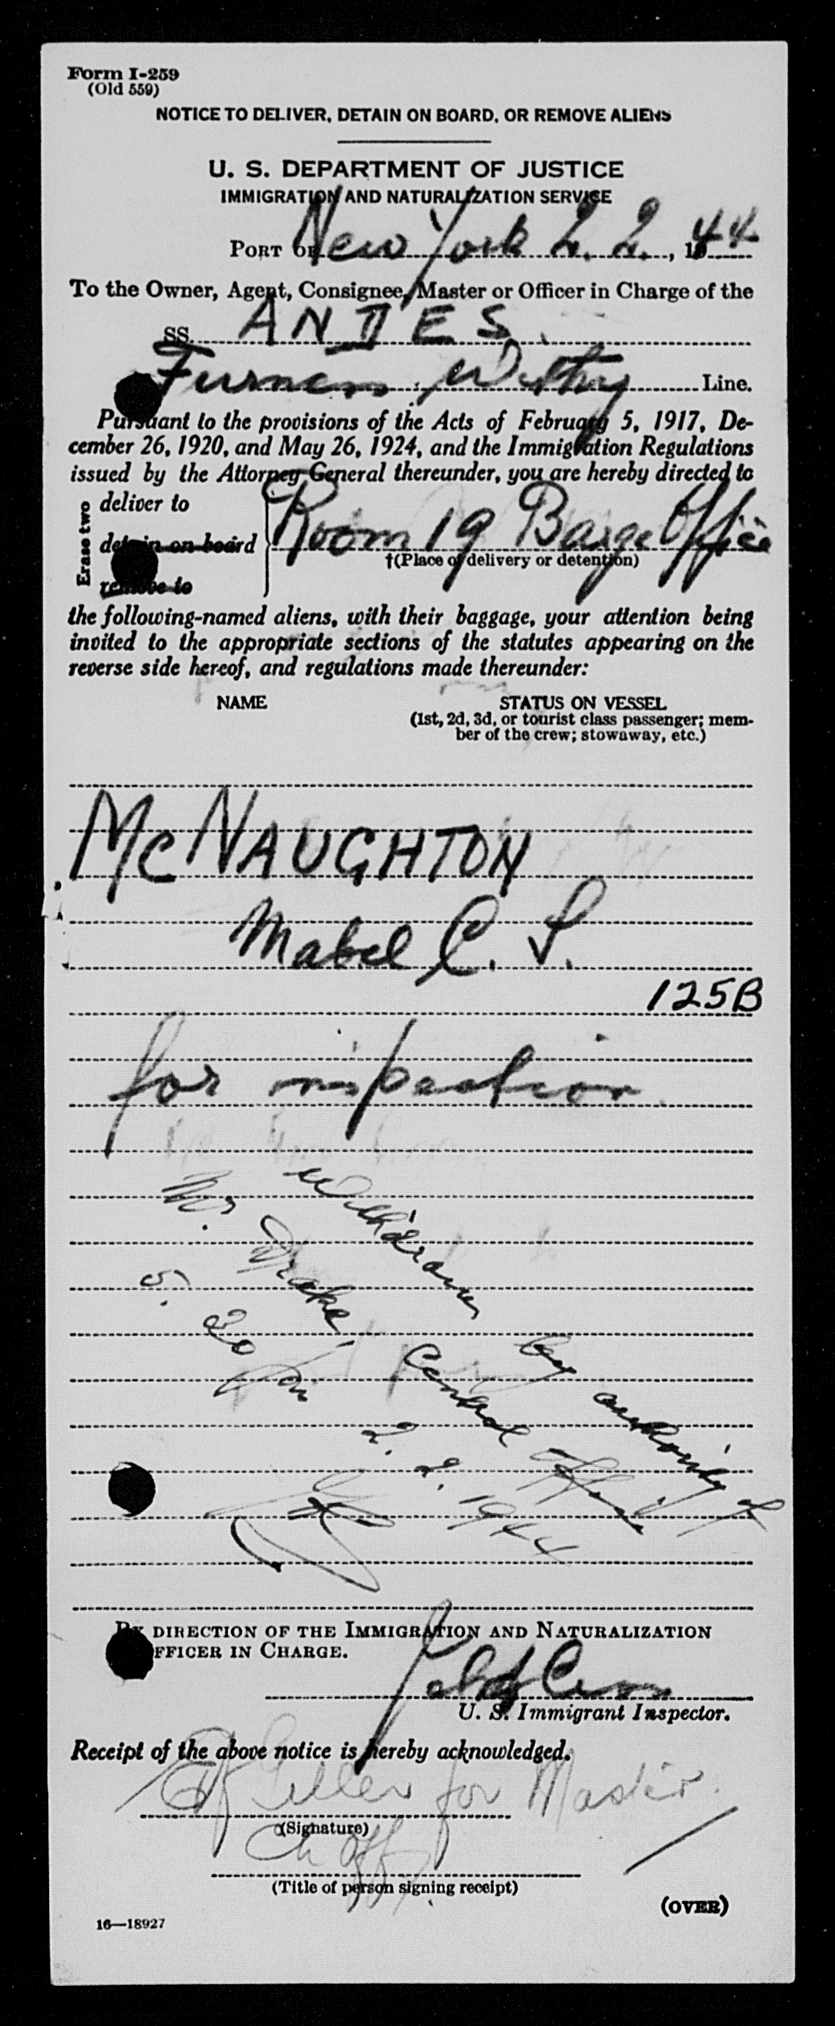 Form I-259
(Old 559)
NOTICE TO DELIVER, DETAIN ON BOARD, OR REMOVE ALIENS
U. S. DEPARTMENT OF JUSTICE
IMMIGRATION AND NATURALIZATION SERVICE
PORT OF New York 2. 2., 1944
To the Owner, Agent, Consignee, Master or Officer in Charge of the
SS. ANDES.
Furness, Withy Line.
Pursuant to the provisions of the Acts of February 5, 1917, De-
cember 26, 1920, and May 26, 1924, and the Immigration Regulations
issued by the Attorney General thereunder, you are hereby directed to
Erase two
deliver to
detain on board
remove to
Room 19 Barge Office
†(Place of delivery or detention)
the following-named aliens, with their baggage, your attention being
invited to the appropriate sections of the statutes appearing on the
reverse side hereof, and regulations made thereunder:
NAME STATUS ON VESSEL
(1st, 2d, 3d, or tourist class passenger; mem-
ber of the crew; stowaway, etc.)
McNAUGHTON
Mabel C. S.
125B
for inspection
Withdrawn by authority of
Mr. Drake, Central Office
5. 20 pm 2. 2. 1944
BY DIRECTION OF THE IMMIGRATION AND NATURALIZATION
OFFICER IN CHARGE.
U. S. Immigrant Inspector.
Receipt of the above notice is hereby acknowledged.
for Master.
(Signature)
Ch Off.
(Title of person signing receipt)
(OVER)
16—18927